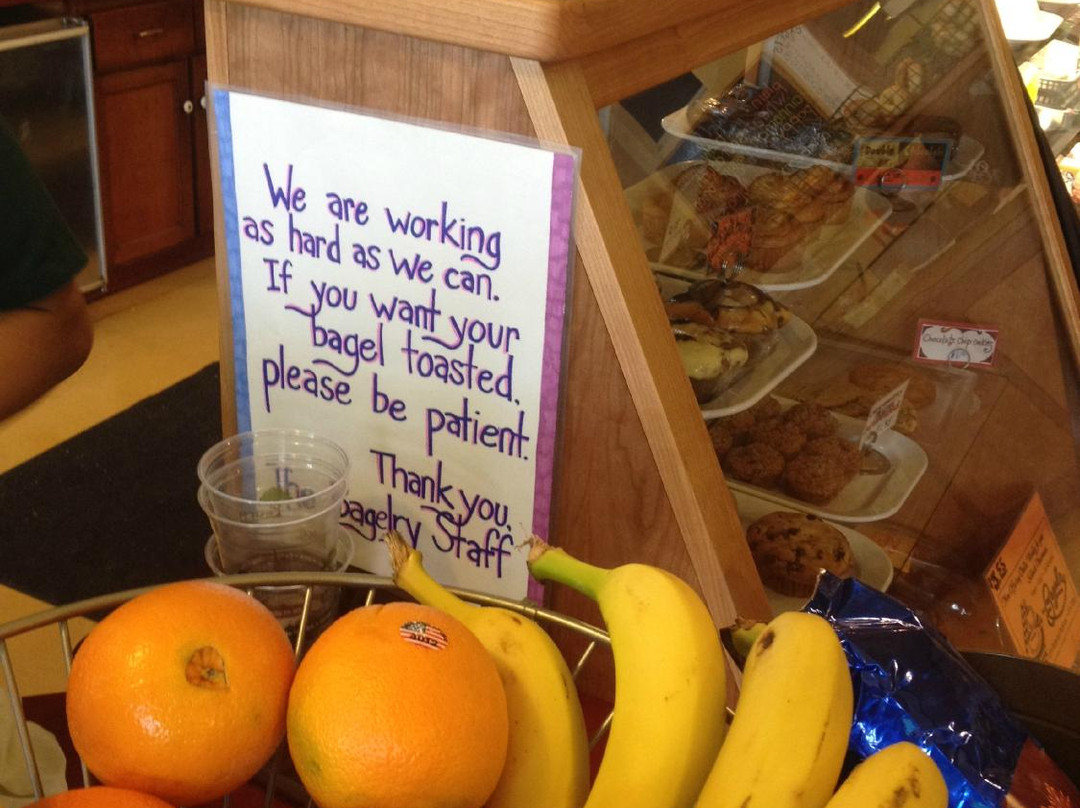 We are working
as hard as we can.
If you want your
bagel toasted,
please be patient.
Thank you,
Bagelry Staff
Chocolate Chip Cookies
Double
$3.55